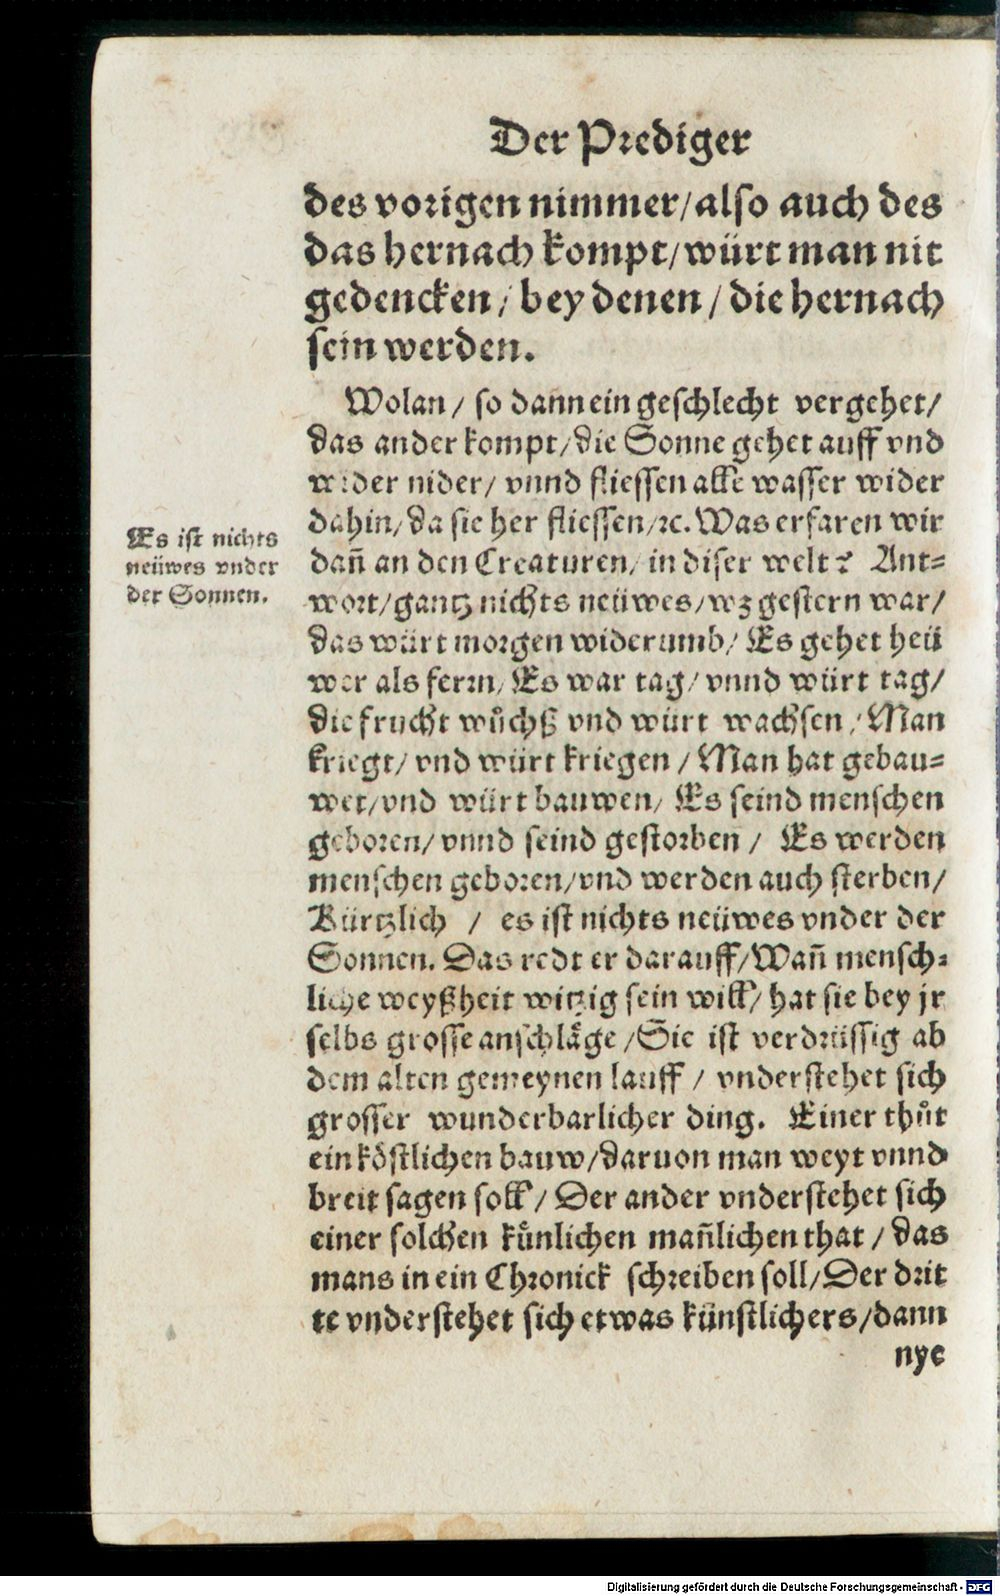 Der Prediger
des vorigen nimmer/also auch des
das hernach kompt/würt man nit
gedencken/ bey denen / die hernach
sein werden.
Wolan / so dann ein geschlecht vergehet/
das ander kompt/die Sonne gehet auff vnd
wider nider/ vnnd fliessen alle wasser wider
dahin/da sie her fliessen/ꝛc. Was erfaren wir
dañ an den Creaturen/ in diser welt? Ant=
wort/gantz nichts neüwes/wz gestern war/
das würt morgen widerumb/ Es gehet heü
wer als fern/ Es war tag/ vnnd würt tag/
die frucht wůchß vnd würt wachsen / Man
kriegt/ vnd würt kriegen / Man hat gebau=
wet/vnd würt bauwen/ Es seind menschen
geboren/ vnnd seind gestorben / Es werden
menschen geboren/vnd werden auch sterben/
Kürtzlich / es ist nichts neüwes vnder der
Sonnen. Das redt er darauff/Wañ mensch=
liche weyßheit witzig sein will/ hat sie bey jr
selbs grosse anschläge /Sie ist verdrüssig ab
dem alten gemeynen lauff / vnderstehet sich
grosser wunderbarlicher ding. Einer thůt
ein köstlichen bauw/daruon man weyt vnnd
breit sagen soll / Der ander vnderstehet sich
einer solchen künlichen mañlichen that / das
mans in ein Chronick schreiben soll/Der drit
te vnderstehet sich etwas künstlichers/dann
nye
Es ist nichts
neüwes vnder
der Sonnen.
Digitalisierung gefördert durch die Deutsche Forschungsgemeinschaft - DFG